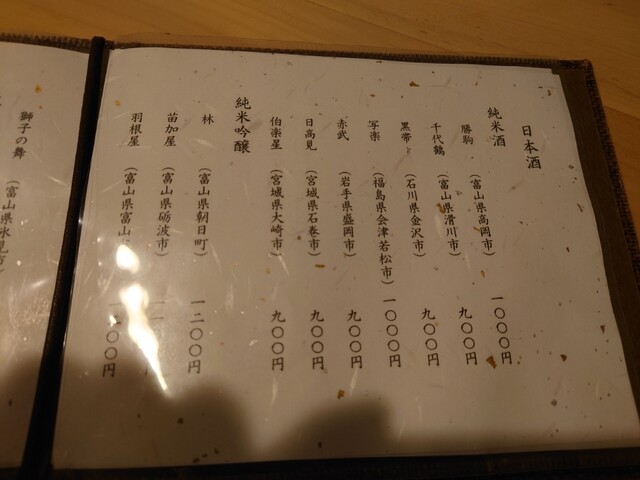 日本酒
純米酒
勝駒 (富山県高岡市) 一〇〇〇円
千代鶴 (富山県滑川市) 九〇〇円
黒帯 (石川県金沢市) 九〇〇円
写楽 (福島県会津若松市) 一〇〇〇円
赤武 (岩手県盛岡市) 九〇〇円
日高見 (宮城県石巻市) 九〇〇円
伯楽星 (宮城県大崎市) 九〇〇円
純米吟醸
林 (富山県朝日町) 一二〇〇円
苗加屋 (富山県砺波市) 円
羽根屋 (富山県富山 〇〇円
獅子の舞 (富山県氷見市)